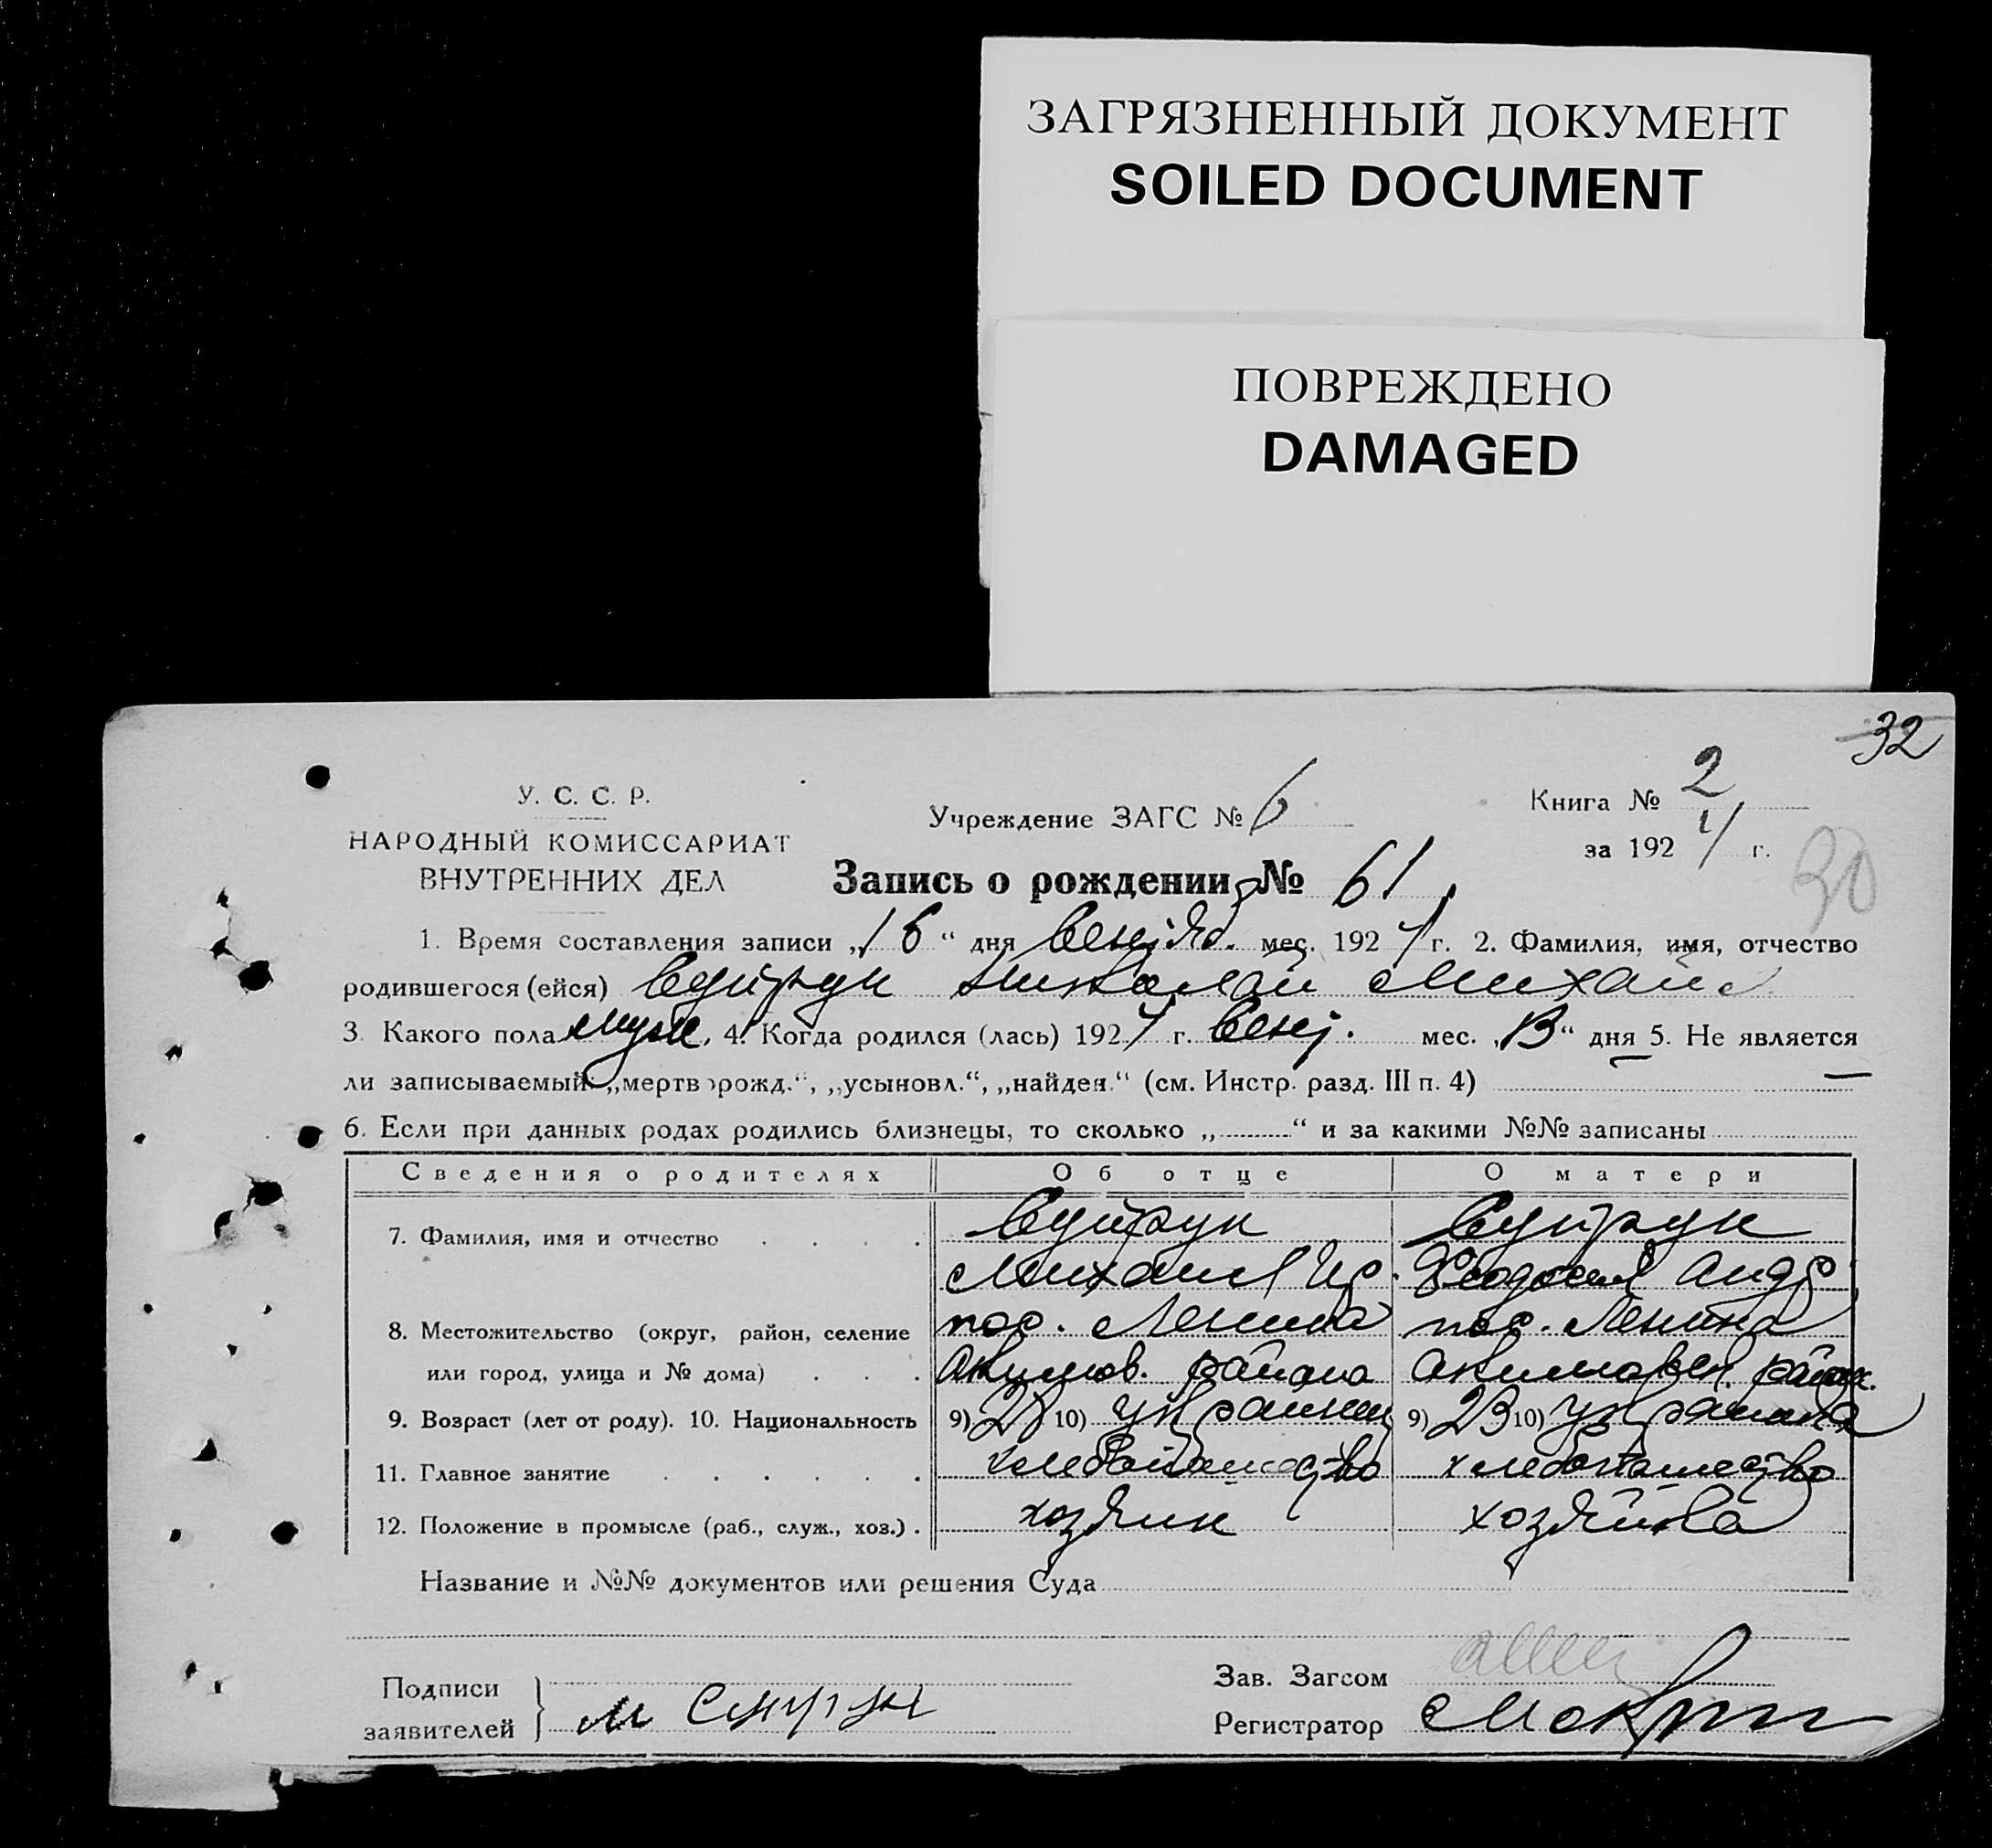 ЗАГРЯЗНЕННЫЙ ДОКУМЕНТ
SOILED DOCUMENT
ПОВРЕЖДЕНО
DAMAGED
32
У. С. С. Р.
НАРОДНЫЙ КОМИССАРИАТ
ВНУТРЕННИХ ДЕЛ
Учреждение ЗАГС № 6
Книга № 2
за 192 г.
30
Запись о рождении № 61
1. Время составления записи „16“ дня мес. 192 г. 2. Фамилия, имя, отчество
родившегося (ейся) Николай Михайл
3. Какого пола муж. 4. Когда родился (лась) 192 г. мес. „13“ дня 5. Не является
ли записываемый: „мертворожд.“, „усыновл.“, „найден.“ (см. Инстр. разд. III п. 4) —
6. Если при данных родах родились близнецы, то сколько „ “ и за какими №№ записаны
Сведения о родителях Об отце О матери
7. Фамилия, имя и отчество
Михаил Феодосия Андр
8. Местожительство (округ, район, селение пос. Ленина пос. Ленина
или город, улица и № дома) Акимов. района Акимовск. район.
9. Возраст (лет от роду). 10. Национальность 9) 28 10) украинец 9) 23 10) украинка
11. Главное занятие хлебопашество хлебопашество
12. Положение в промысле (раб., служ., хоз.) хозяин хозяйка
Название и №№ документов или решения Суда
Подписи
заявителей М
Зав. Загсом
Регистратор